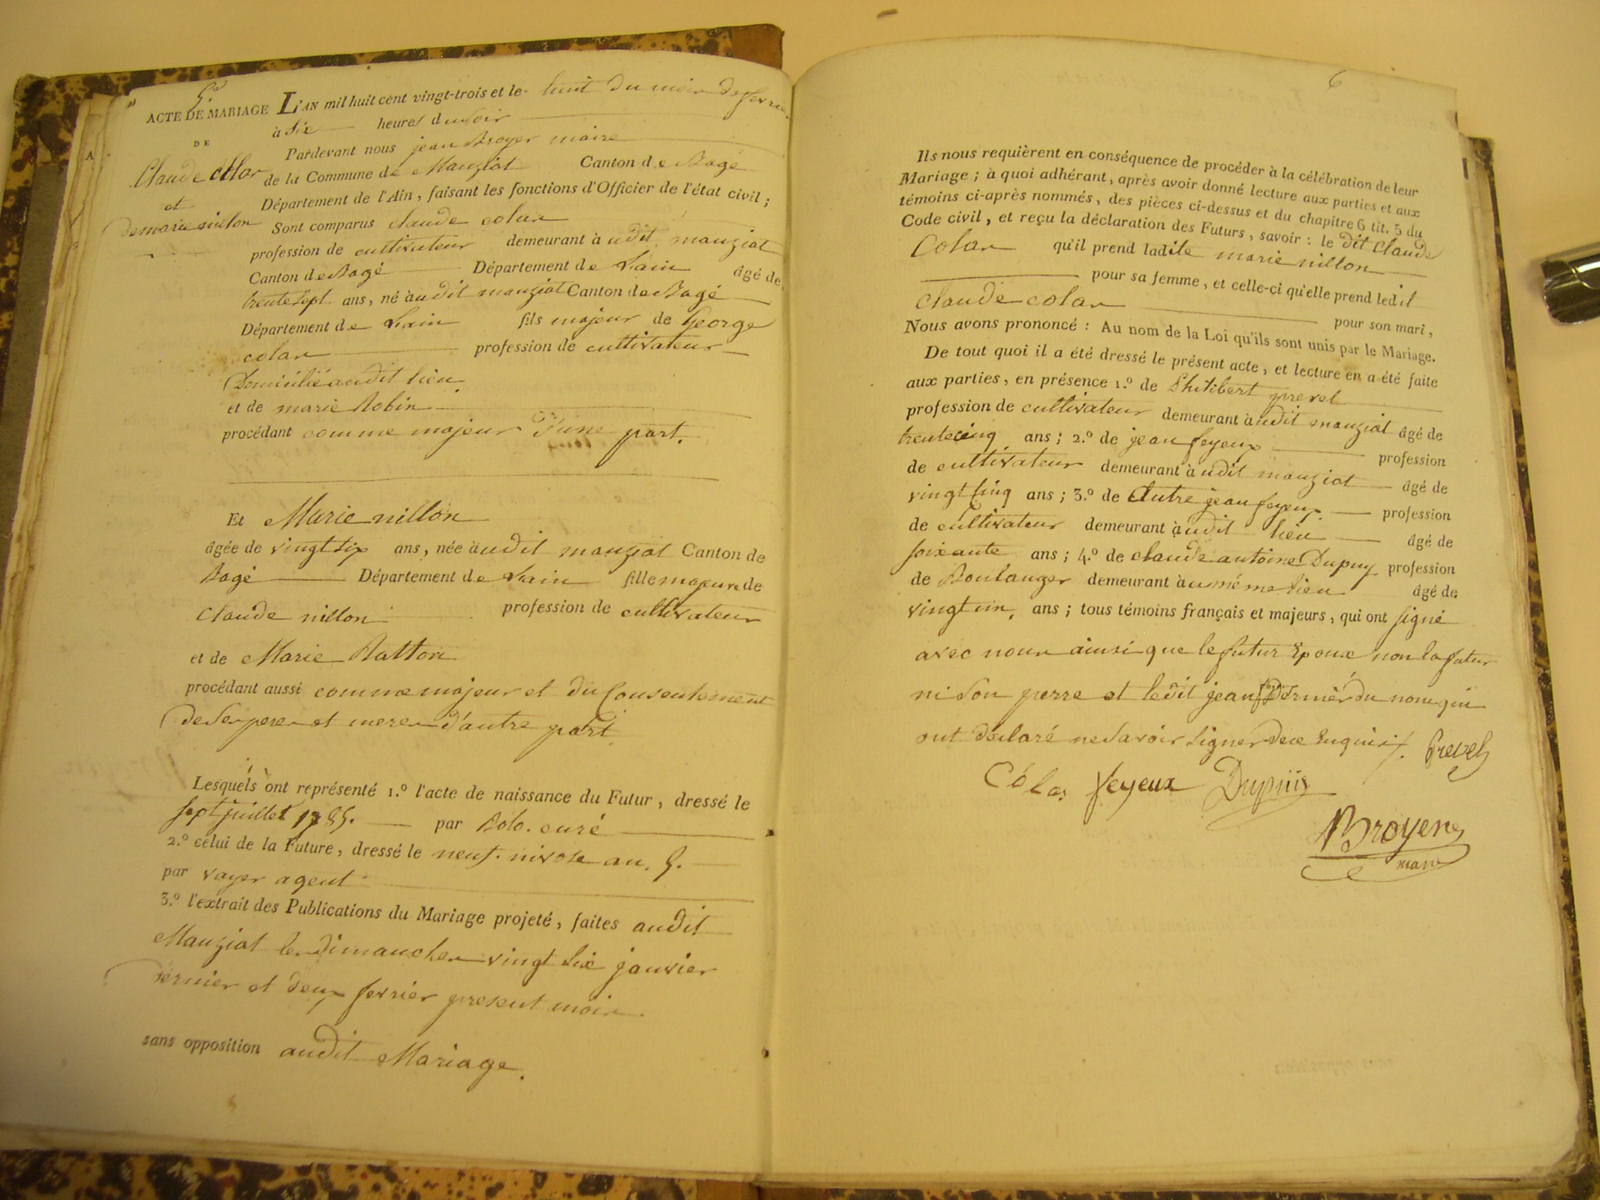 5.
ACTE DE MARIAGE
DE
Claude Colas
et
de marie nillon
L'AN mil huit cent vingt-trois et le huit du mois de fevrier
à Six heures du soir
Pardevant nous jean Broyer maire
de la Commune de Manziat Canton de Bagé
Département de l'Ain, faisant les fonctions d'Officier de l'état civil;
Sont comparus claude colas
profession de cultivateur demeurant à udit manziat
Canton de Bagé Département de Lain âgé de
trente sept ans, né à udit manziat Canton de Bagé
Département de Lain fils majeur de George
colas profession de cultivateur
Domicilié audit lieu
et de marie Robin
procédant comme majeur d'une part.
Et Marie nillon
âgée de vingt six ans, née à udit manziat Canton de
Bagé Département de Lain fille majeure de
claude nillon profession de cultivateur
et de Marie Ratton
procédant aussi comme majeur et du Consentement
de Ses pere et mere d'autre part
Lesquels ont représenté 1.º l'acte de naissance du Futur, dressé le
sept juillet 1785. par Bolo. curé
2.º celui de la Future, dressé le neuf. nivose an. 5.
par voyer agent
3.º l'extrait des Publications du Mariage projeté, faites audit
Manziat les dimanches vingt six janvier
dernier et deux fevrier present mois.
sans opposition audit Mariage.
6
Ils nous requièrent en conséquence de procéder à la célébration de leur
Mariage; à quoi adhérant, après avoir donné lecture aux parties et aux
témoins ci-après nommés, des pièces ci-dessus et du chapitre 6 tit. 5 du
Code civil, et reçu la déclaration des Futurs, savoir: le dit claude
Colas qu'il prend ladite marie nillon
pour sa femme, et celle-ci qu'elle prend ledit
claude colas pour son mari,
Nous avons prononcé: Au nom de la Loi qu'ils sont unis par le Mariage.
De tout quoi il a été dressé le présent acte, et lecture en a été faite
aux parties, en présence 1.º de Philibert prevel
profession de cultivateur demeurant à udit manziat âgé de
trente cinq ans; 2.º de jean feyeux profession
de cultivateur demeurant à udit manziat âgé de
vingt Cinq ans; 3.º de Autre jean feyeux profession
de cultivateur demeurant à udit lieu âgé de
soixante ans; 4.º de claude antoine Dupuy profession
de Boulanger demeurant à u même lieu âgé de
vingt un. ans; tous témoins français et majeurs, qui ont signé
avec nous ainsi que le futur Epoux non la futur
ni Son perre et ledit jean dernier du nom qui
ont déclaré ne Savoir signer de ce Enquis. Prevel
Colas feyeux Dupuis
Broyer
maire